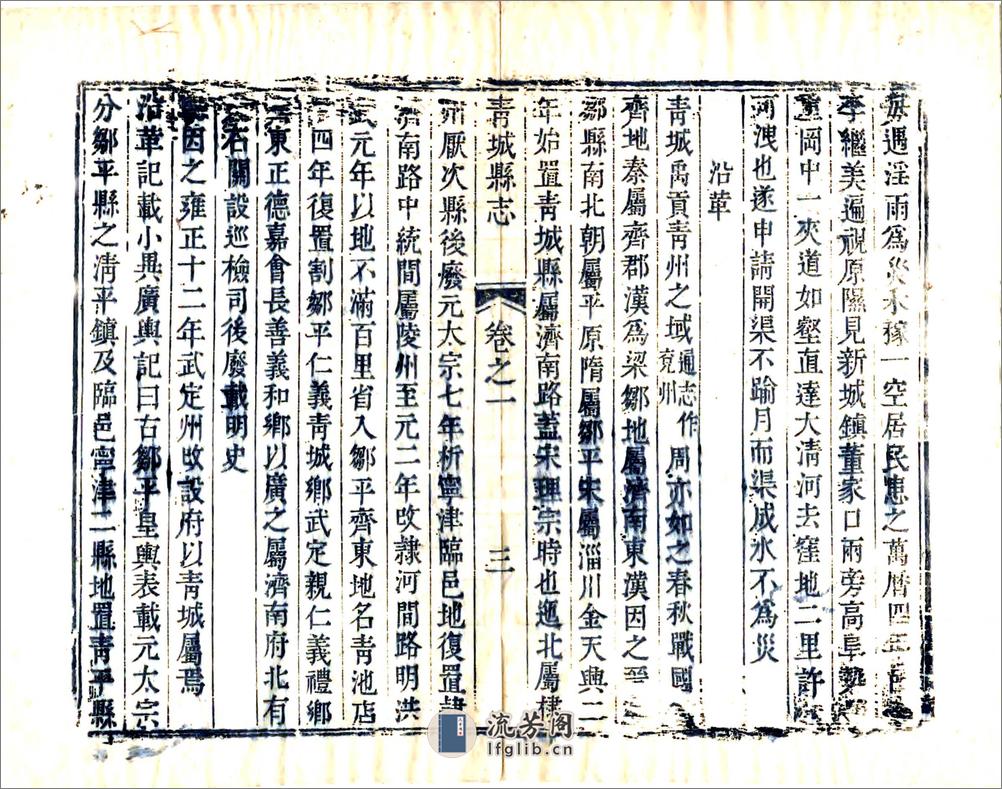 每遇淫雨為災禾稼一空居民患之萬曆四年
李繼美遍視原隰見新城鎮董家口兩旁高阜勢
重岡中一夾道如壑直達大清河去窪地二里許
河洩也遂申請開渠不踰月而渠成水不為災
沿革
青城禹貢青州之域通志作兗州周亦如之春秋戰國
齊地秦屬齊郡漢為梁鄒地屬濟南東漢因之至
鄒縣南北朝屬平原隋屬鄒平宋屬淄川金天興二
年始置青城縣屬濟南路蓋宋理宗時也迤北屬棣
青城縣志
卷之一
三
州厭次縣後廢元太宗七年析寧津臨邑地復置隸
濟南路中統間屬陵州至元二年改隸河間路明洪
武元年以地不滿百里省入鄒平齊東地名青池店
四年復置割鄒平仁義青城鄉武定親仁義禮鄉
東正德嘉會長善義和鄉以廣之屬濟南府北有
石關設巡檢司後廢載明史
因之雍正十二年武定州改設府以青城屬焉
沿革記載小異廣輿記曰古鄒平皇輿表載元太宗
分鄒平縣之清平鎮及臨邑寧津二縣地置青平縣
流芳阁
lfglib.cn